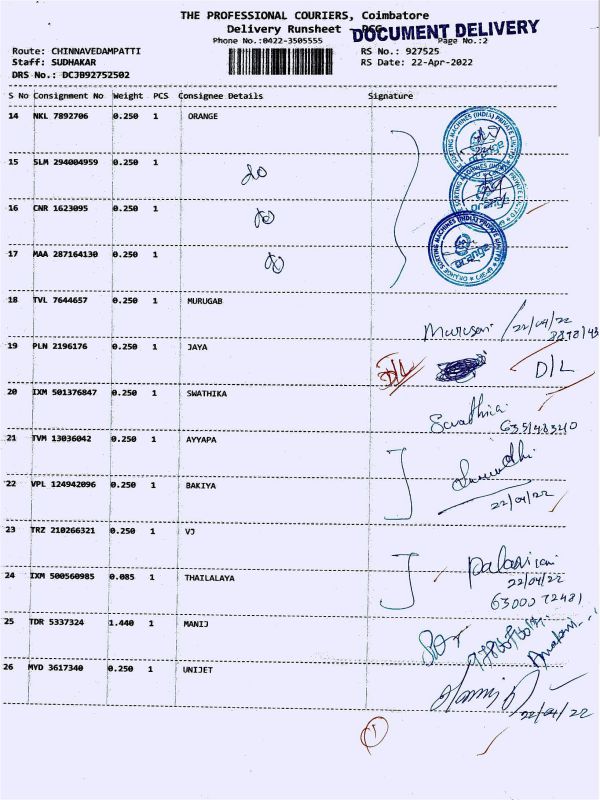 THE PROFESSIONAL COURIERS, Coimbatore
Delivery Runsheet - PCG
DOCUMENT DELIVERY
Phone No.:0422-3505555
Page No.:2
Route: CHINNAVEDAMPATTI
RS No.: 927525
Staff: SUDHAKAR
RS Date: 22-Apr-2022
DRS No.: DCJB92752502
S No Consignment No Weight PCS Consignee Details Signature
14 NKL 7892706 0.250 1 ORANGE
15 SLM 294004959 0.250 1 do
16 CNR 1623095 0.250 1 do
17 MAA 287164130 0.250 1 do
ORANGE SORTING MACHINES (INDIA) PRIVATE LIMITED
orange
18 TVL 7644657 0.250 1 MURUGAB
Murugan / 22/04/22
19 PLN 2196176 0.250 1 JAYA
D/L D/L
20 IXM 501376847 0.250 1 SWATHIKA
Swathika
21 TVM 13036042 0.250 1 AYYAPA
22 VPL 124942096 0.250 1 BAKIYA
22/04/22
23 TRZ 210266321 0.250 1 VJ
24 IXM 500560985 0.085 1 THAILALAYA
22/04/22
6300072481
25 TDR 5337324 1.440 1 MANIJ
26 MYD 3617340 0.250 1 UNIJET
22/04/22
1